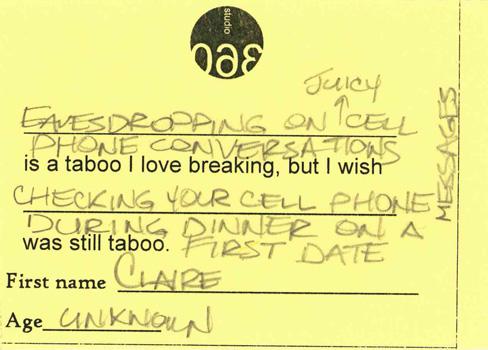 studio
360
JUICY
EAVESDROPPING ON CELL
PHONE CONVERSATIONS
is a taboo I love breaking, but I wish
CHECKING YOUR CELL PHONE MESSAGES
DURING DINNER ON A
was still taboo. FIRST DATE
First name CLAIRE
Age UNKNOWN